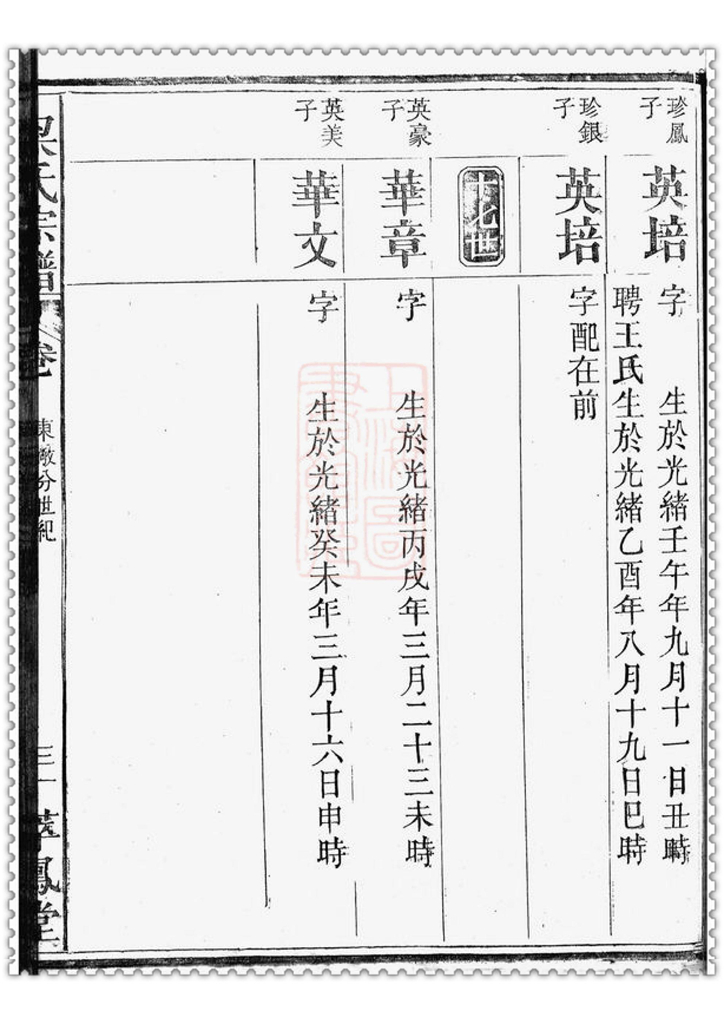 珍鳳
子
英培
字　　生於光緒壬午年九月十一日丑時
聘王氏生於光緒乙酉年八月十九日巳時
珍銀
子
英培
字配在前
世
英豪
子
華章
字　　生於光緒丙戌年三月二十三未時
英美
子
華文
字　　生於光緒癸未年三月十六日申時
氏宗譜
卷
東 分世紀
三
鳳堂
上海圖
書館藏